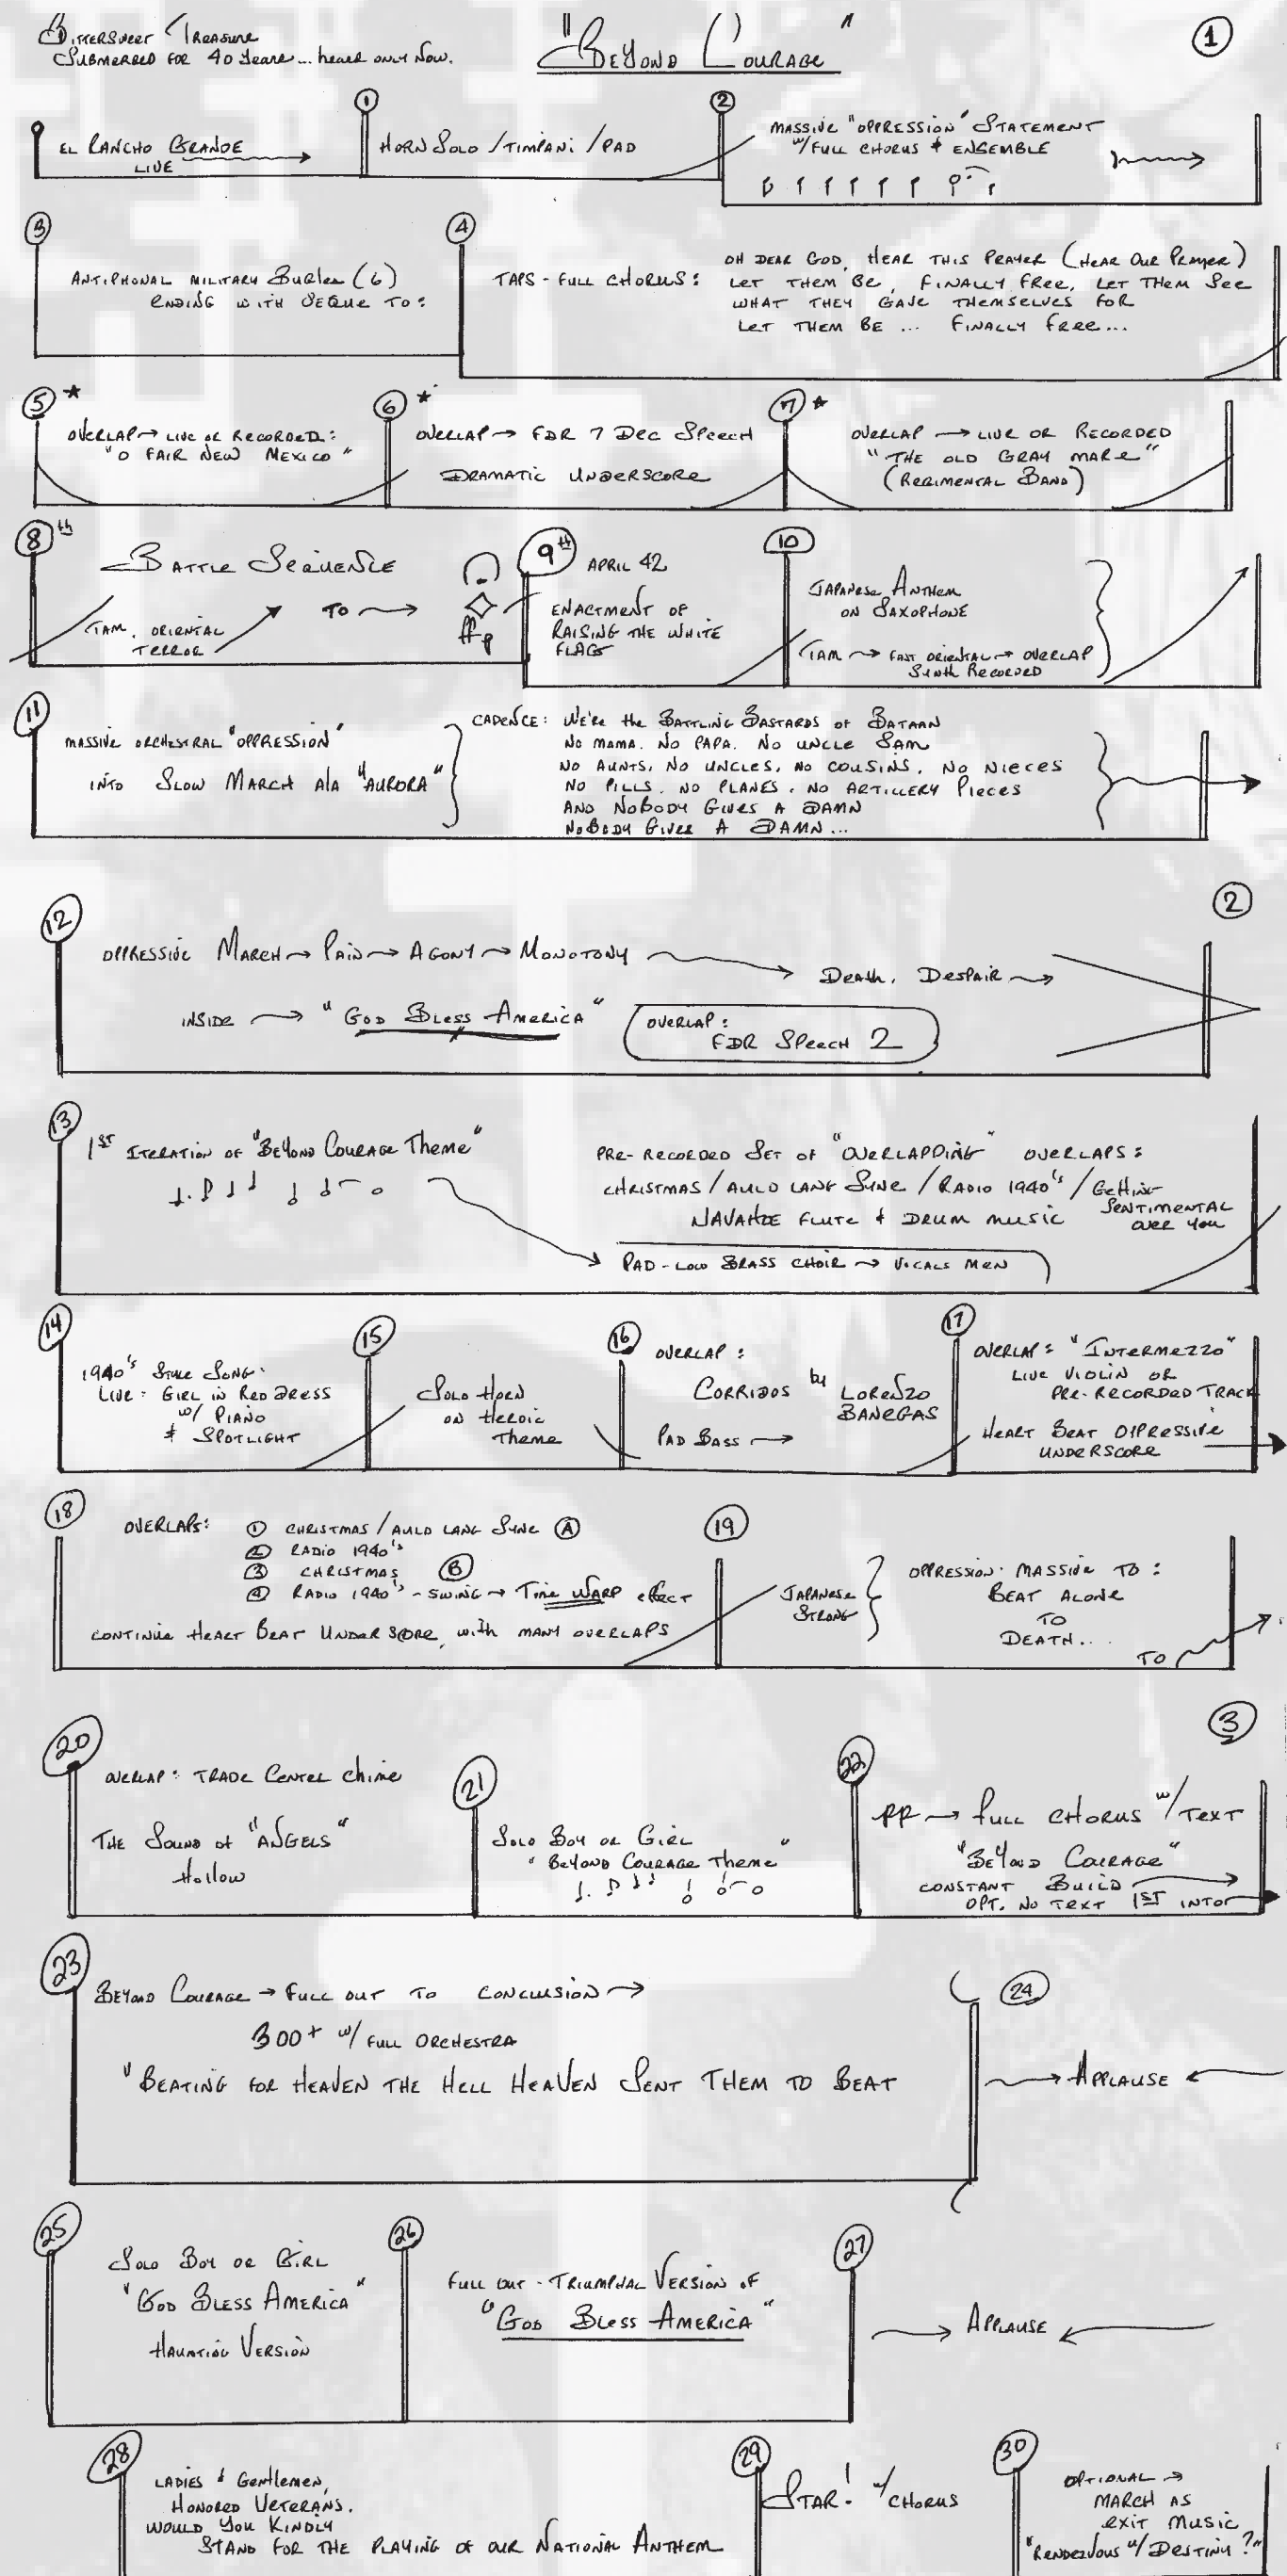 BitterSweet Treasure
Submerged for 40 Years... heard only Now.
"Beyond Courage"
1
EL RANCHO GRANDE
LIVE
1
HORN SOLO / TIMPANI / PAD
2
MASSIVE "OPPRESSION" STATEMENT
w/FULL CHORUS & ENSEMBLE
3
ANTIPHONAL MILITARY BUGLES (6)
ENDING WITH SEGUE TO:
4
TAPS - FULL CHORUS:
OH DEAR GOD, HEAR THIS PRAYER (HEAR OUR PRAYER)
LET THEM BE, FINALLY FREE, LET THEM SEE
WHAT THEY GAVE THEMSELVES FOR
LET THEM BE ... FINALLY FREE...
5 *
OVERLAP → LIVE OR RECORDED:
"O FAIR NEW MEXICO"
6 *
OVERLAP → FDR 7 DEC SPEECH
DRAMATIC UNDERSCORE
7 *
OVERLAP → LIVE OR RECORDED
"THE OLD GRAY MARE"
(REGIMENTAL BAND)
8th
BATTLE SEQUENCE
TAM, ORIENTAL
TERROR
TO →
ffp
9th APRIL 42
ENACTMENT OF
RAISING THE WHITE
FLAGS
10
JAPANESE ANTHEM
ON SAXOPHONE
TAM → FAST ORIENTAL → OVERLAP
SYNTH RECORDED
11
MASSIVE ORCHESTRAL "OPPRESSION"
INTO SLOW MARCH ALA "AURORA"
CADENCE: WE'RE the BATTLING BASTARDS of BATAAN
NO MAMA. NO PAPA. NO UNCLE SAM
NO AUNTS, NO UNCLES, NO COUSINS, NO NIECES
NO PILLS, NO PLANES, NO ARTILLERY PIECES
AND NOBODY GIVES A DAMN
NOBODY GIVES A DAMN...
2
12
OPPRESSIVE MARCH → PAIN → AGONY → MONOTONY
DEATH, DESPAIR →
INSIDE → "GOD BLESS AMERICA"
OVERLAP:
FDR SPEECH 2
13
1ST ITERATION OF "BEYOND COURAGE THEME"
PRE-RECORDED SET OF "OVERLAPPING" OVERLAPS:
CHRISTMAS / AULD LANG SYNE / RADIO 1940's / GETTING
SENTIMENTAL
OVER YOU
NAVAHOE FLUTE & DRUM MUSIC
PAD - LOW BRASS CHOIR → VOCALS MEN
14
1940's STYLE SONG:
LIVE: GIRL IN RED DRESS
w/ PIANO
& SPOTLIGHT
15
SOLO HORN
ON HEROIC
THEME
16
OVERLAP:
CORRIDOS by LORENZO
BANEGAS
PAD BASS →
17
OVERLAP: "INTERMEZZO"
LIVE VIOLIN OR
PRE-RECORDED TRACK
HEART BEAT OPPRESSIVE
UNDERSCORE
18
OVERLAPS:
1 CHRISTMAS / AULD LANG SYNE A
2 RADIO 1940's
3 CHRISTMAS B
4 RADIO 1940's - SWING → TIME WARP effect
CONTINUE HEART BEAT UNDERSCORE, with MANY OVERLAPS
19
JAPANESE
STRONG
OPPRESSION - MASSIVE TO:
BEAT ALONE
TO
DEATH...
TO
3
20
OVERLAP: TRADE CENTER CHIME
THE SOUND of "ANGELS"
HOLLOW
21
SOLO BOY OR GIRL
"BEYOND COURAGE THEME"
22
PP → FULL CHORUS w/TEXT
"BEYOND COURAGE"
CONSTANT BUILD
OPT. NO TEXT 1ST INTO
23
BEYOND COURAGE → FULL OUT TO CONCLUSION →
300+ w/ FULL ORCHESTRA
"BEATING FOR HEAVEN THE HELL HEAVEN SENT THEM TO BEAT
24
→ APPLAUSE ←
25
SOLO BOY OR GIRL
"GOD BLESS AMERICA"
HAUNTING VERSION
26
FULL OUT - TRIUMPHAL VERSION OF
"GOD BLESS AMERICA"
27
→ APPLAUSE ←
28
LADIES & GENTLEMEN,
HONORED VETERANS.
WOULD YOU KINDLY
STAND FOR THE PLAYING OF OUR NATIONAL ANTHEM
29
STAR! w/CHORUS
30
OPTIONAL →
MARCH AS
EXIT MUSIC
"RENDEZVOUS w/ DESTINY?"